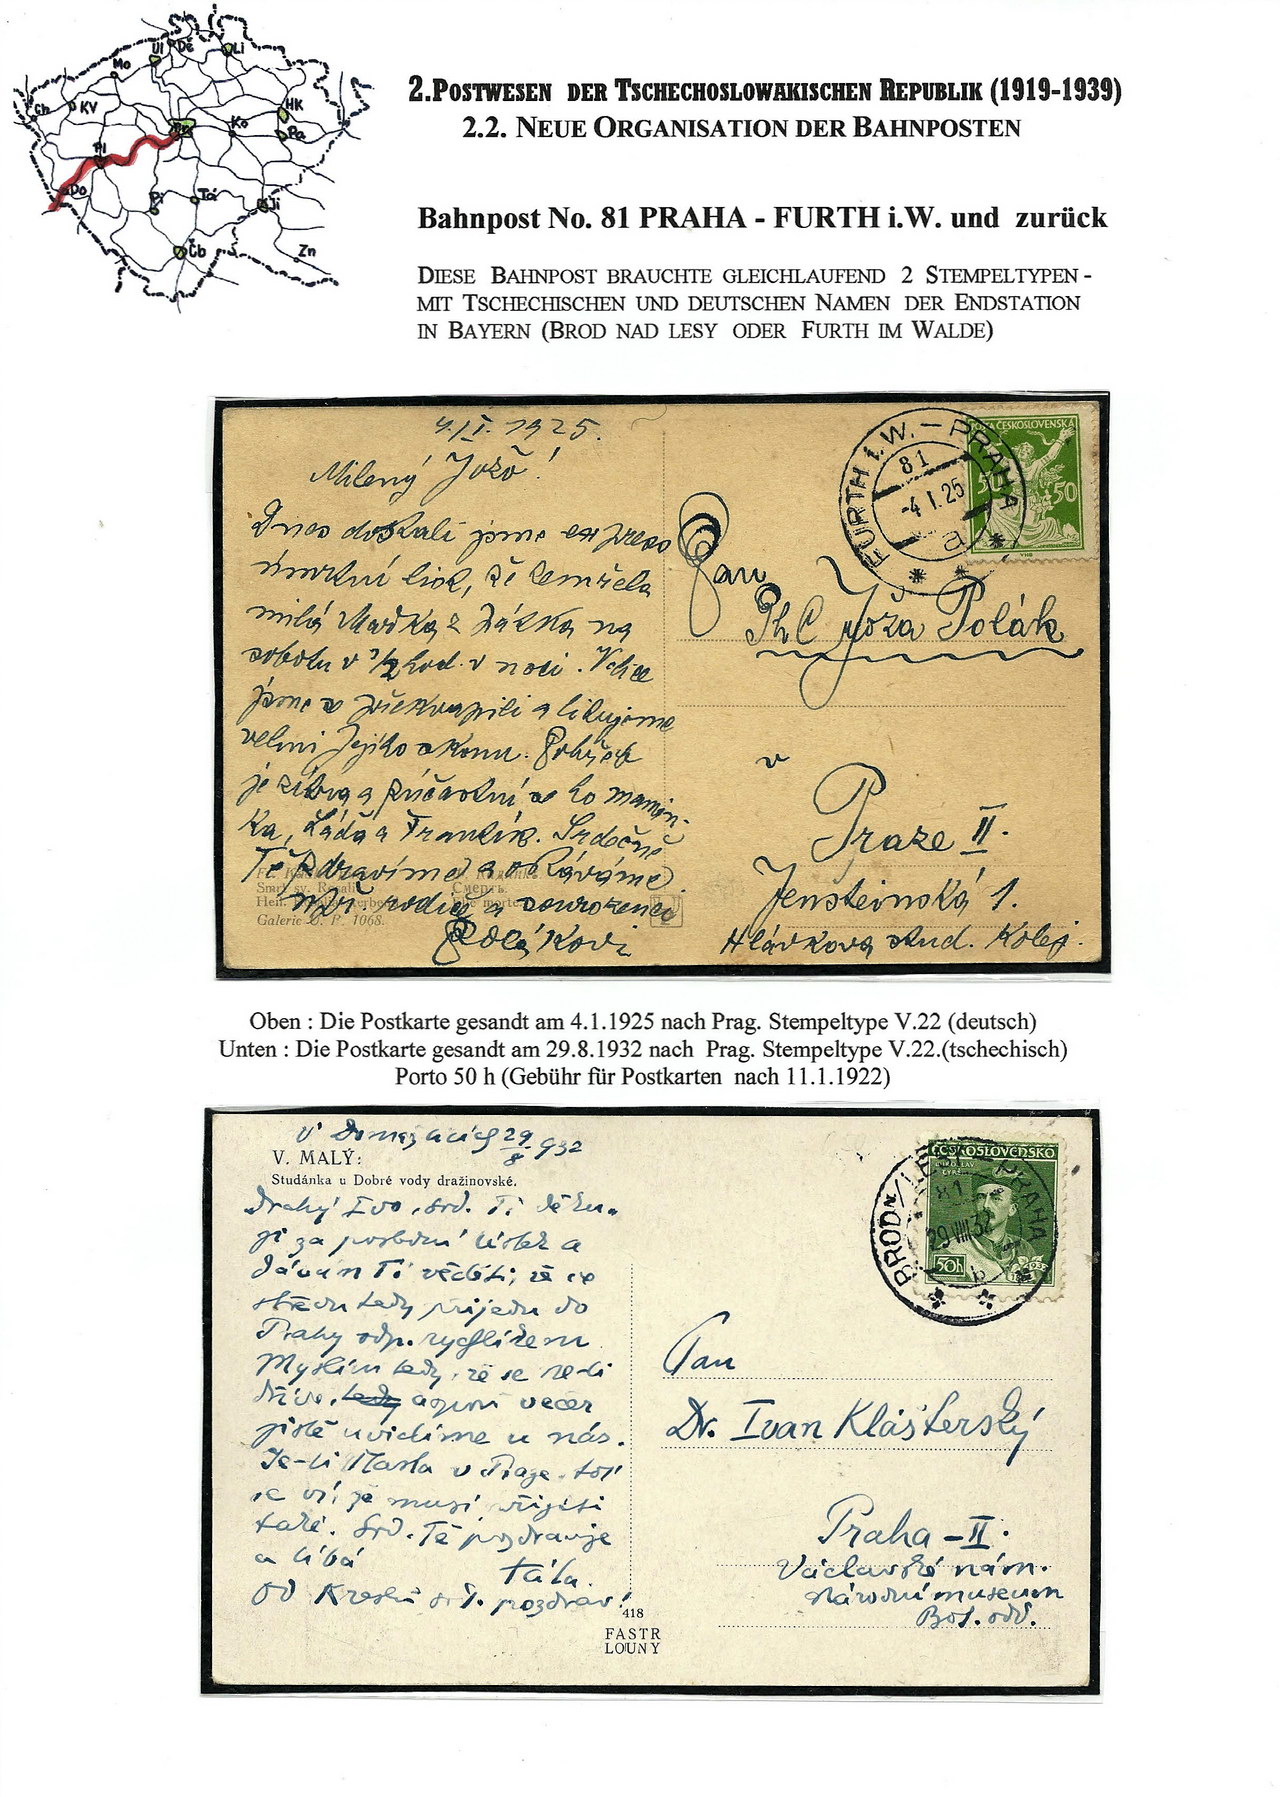 Ul
Dě
Li
Mo
Ch
KV
HK
Pr
Ko
Pa
Pl
Do
Pi
Tá
Ji
Čb
Zn
2.POSTWESEN DER TSCHECHOSLOWAKISCHEN REPUBLIK (1919-1939)
2.2. NEUE ORGANISATION DER BAHNPOSTEN
Bahnpost No. 81 PRAHA - FURTH i.W. und zurück
DIESE BAHNPOST BRAUCHTE GLEICHLAUFEND 2 STEMPELTYPEN -
MIT TSCHECHISCHEN UND DEUTSCHEN NAMEN DER ENDSTATION
IN BAYERN (BROD NAD LESY ODER FURTH IM WALDE)
4./I. 1925.
Milený Jožo!
Dnes dostali jsme expreso
úmrtní list, že zemřela
milá Mařka z
na
sobotu v 1/2 hod. v noci. Velice
jsme se překvapili a litujeme
velmi Jejího skonu. Pohřeb
je zítra a zúčastní se ho mamin-
ka, Láďa a Frantík. Srdečně
Tě zdravíme a
rodiče a sourozenci
Polákovi
Smrt sv. Rosalie
Смерть.
Galerie U. P. 1068.
FURTH i.W. – PRAHA
81
-4.I.25
a
POŠTA ČESKOSLOVENSKÁ
50 50
Pan
PhC Joža Polák
v
Praze II.
Jensteinská 1.
Hlávkova stud. kolej.
Oben : Die Postkarte gesandt am 4.1.1925 nach Prag. Stempeltype V.22 (deutsch)
Unten : Die Postkarte gesandt am 29.8.1932 nach Prag. Stempeltype V.22.(tschechisch)
Porto 50 h (Gebühr für Postkarten nach 11.1.1922)
V Domažlicích 29/8 932
V. MALÝ:
Studánka u Dobré vody dražinovské.
Drahý Ivo, srd. Ti děku-
ji za poslední lístek a
dávám Ti věděti, že ve
středu tedy přijedu do
Prahy odp. rychlíkem
Myslím tedy, že se ne-li
dříve, tedy aspoň večer
jistě uvidíme u nás.
Je-li Masla v Praze,
se ví, že musí přijíti
také. Srd. Tě pozdravuje
a líbá
Táta.
Od
pozdrav!
418
FASTR
LOUNY
BROD N/LESY – PRAHA
81
29.VIII.32
b
ČESKOSLOVENSKO
MIROSLAV
TYRŠ
50h
Pan
Dr. Ivan Klášterský
Praha – II.
Václavské nám.
Národní museum
Bot. odd.